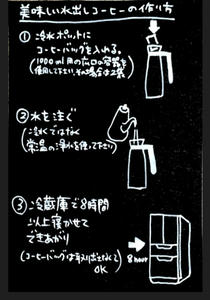 美味しい水出しコーヒーの作り方
① 冷水ポットに
コーヒーバッグを入れる。
(1000ml用の広口の容器を
使用して下さい。その場合は2袋)
② 水を注ぐ
(冷水ではなく
常温の浄水を使って下さい)
③ 冷蔵庫で8時間
以上寝かせて
できあがり
(コーヒーバッグは取り出さなくて
OK)
8hour